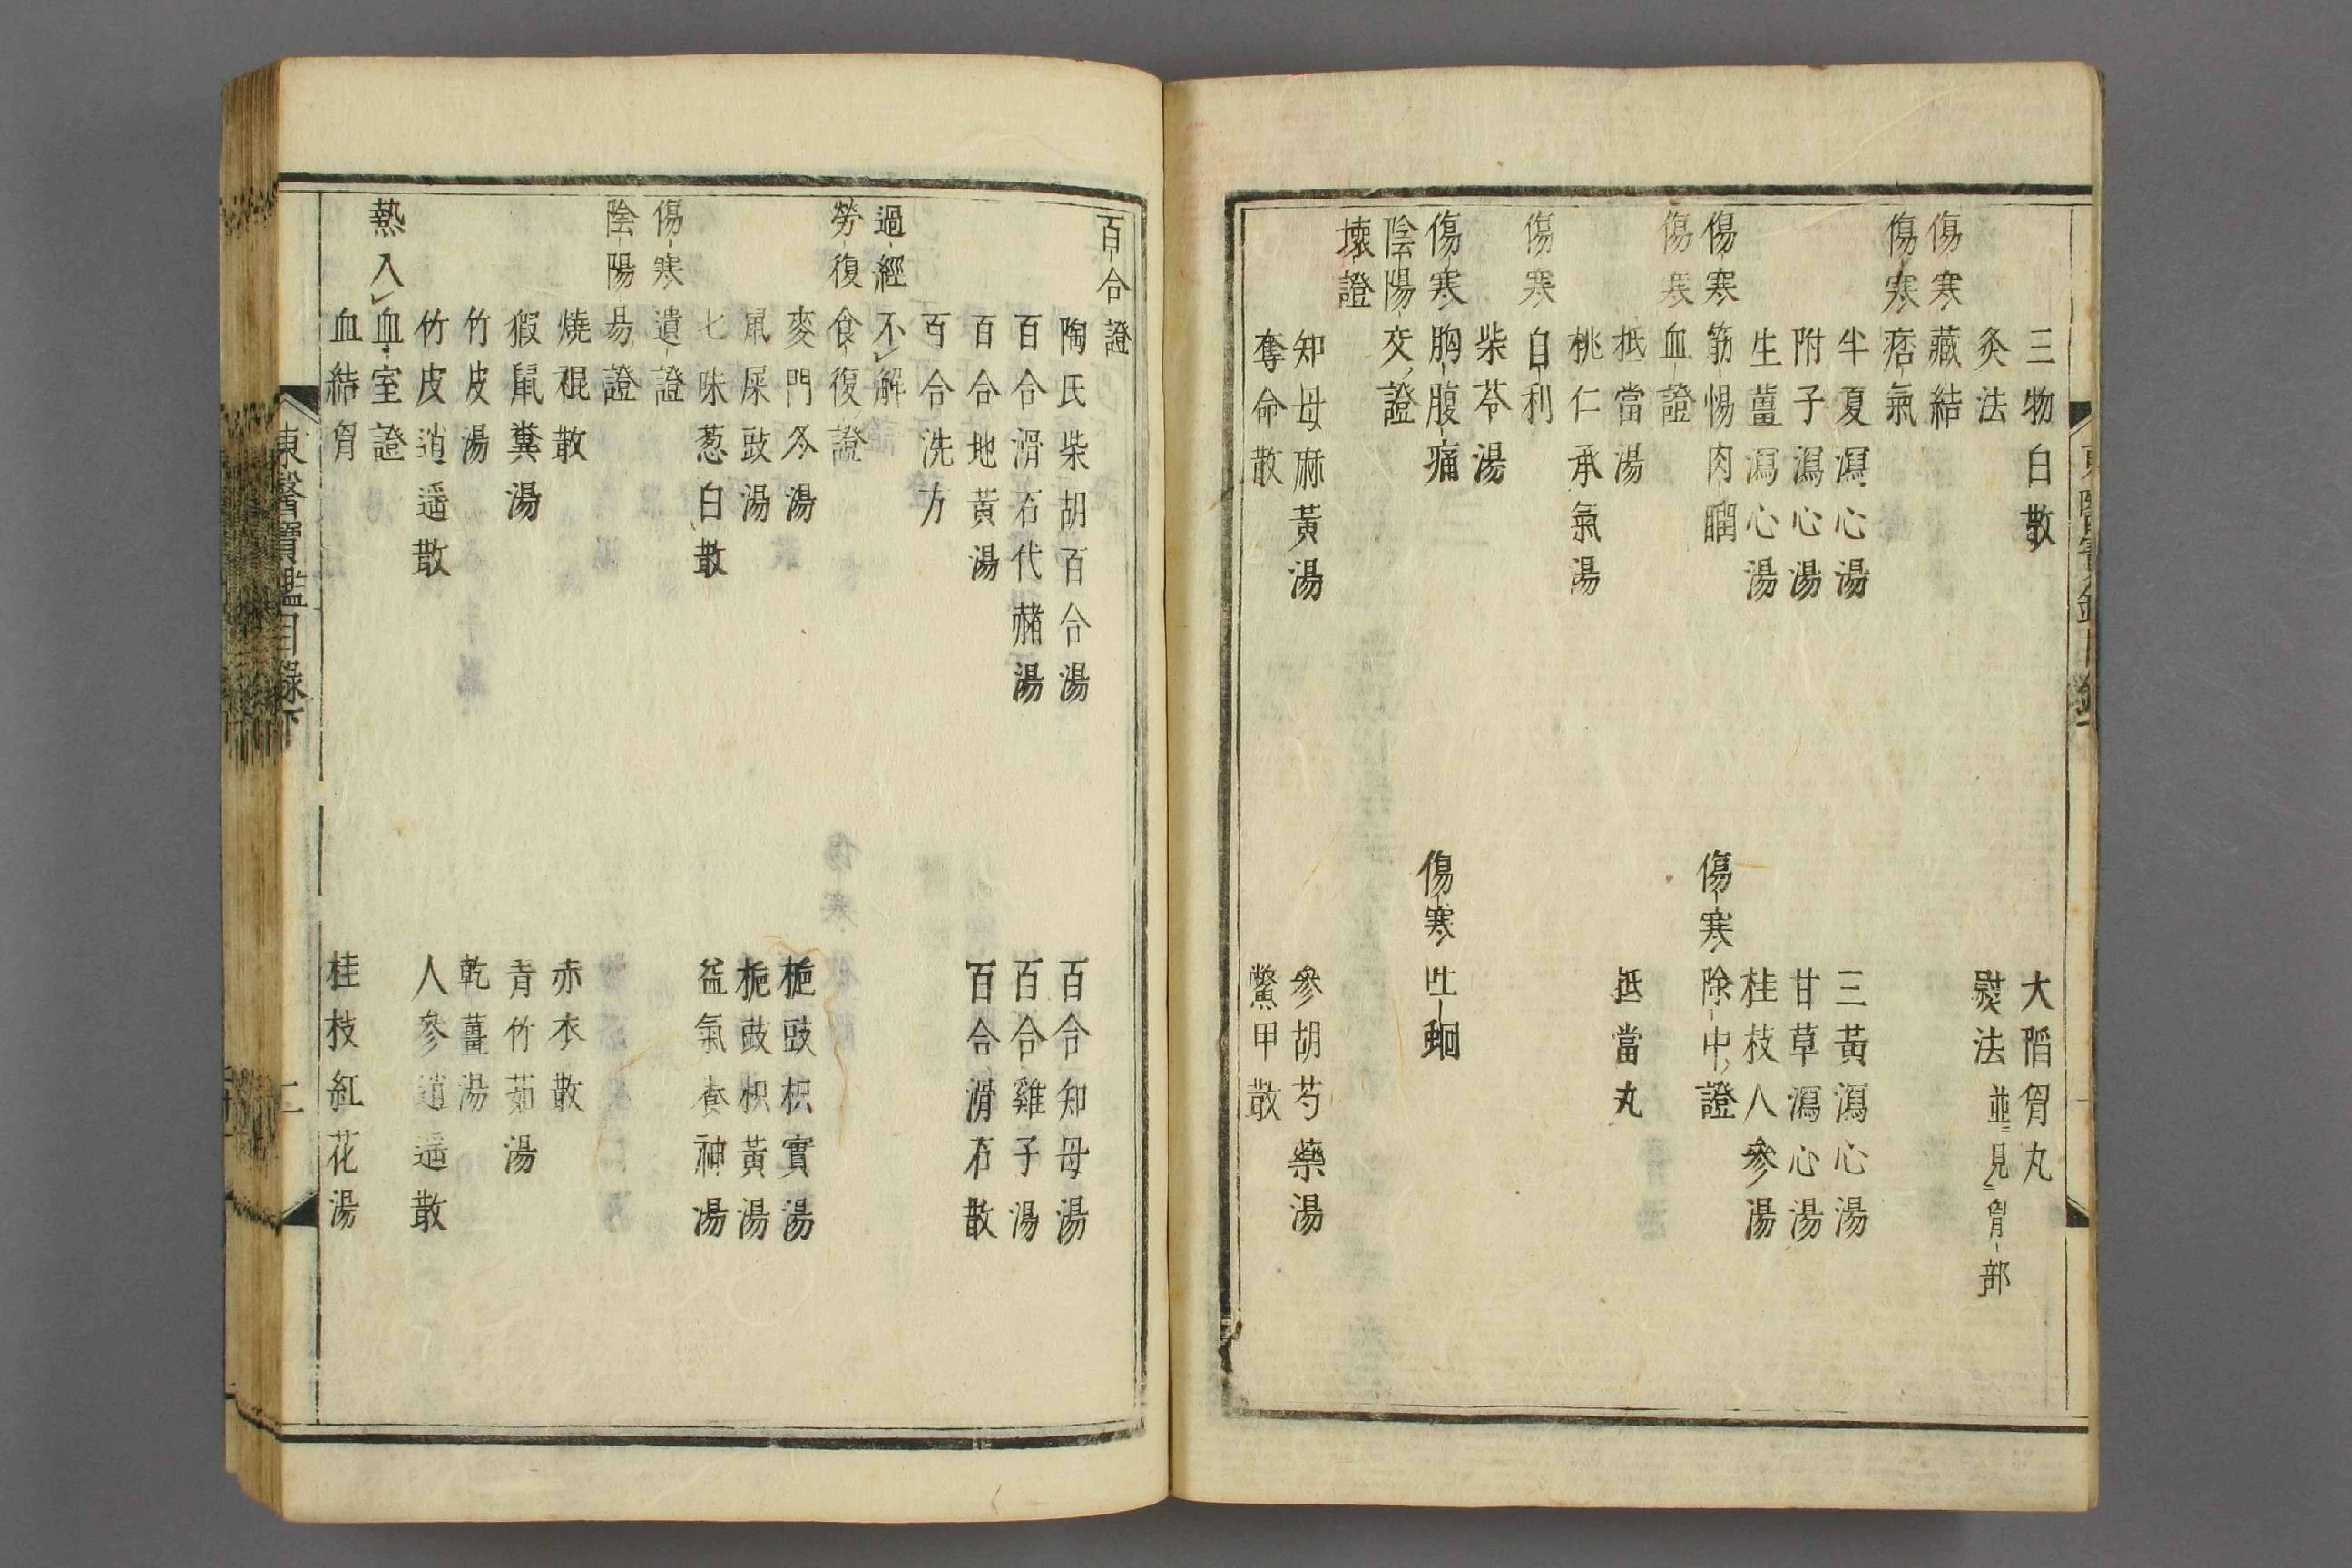 三物白散 大陷胷丸
灸法 熨法 並見胷部
傷寒藏結
傷寒痞氣
半夏瀉心湯 三黃瀉心湯
附子瀉心湯 甘草瀉心湯
生薑瀉心湯 桂枝人參湯
傷寒筋惕肉瞤 傷寒除中證
傷寒血證
抵當湯 抵當丸
桃仁承氣湯
傷寒自利
柴苓湯
傷寒胸腹痛 傷寒吐蛔
陰陽交證
壞證
知母麻黃湯 參胡芍藥湯
奪命散 鱉甲散
百合證
陶氏柴胡百合湯 百合知母湯
百合滑石代赭湯 百合雞子湯
百合地黃湯 百合滑石散
百合洗方
過經不解
勞復食復證
麥門冬湯 梔豉枳實湯
鼠屎豉湯 梔豉枳黃湯
七味葱白散 益氣養神湯
傷寒遺證
陰陽易證
燒裩散 赤衣散
猳鼠糞湯 青竹茹湯
竹皮湯 乾薑湯
竹皮逍遥散 人參逍遥散
熱入血室證
血結胷 桂枝紅花湯
東醫寶鑑目錄下 二